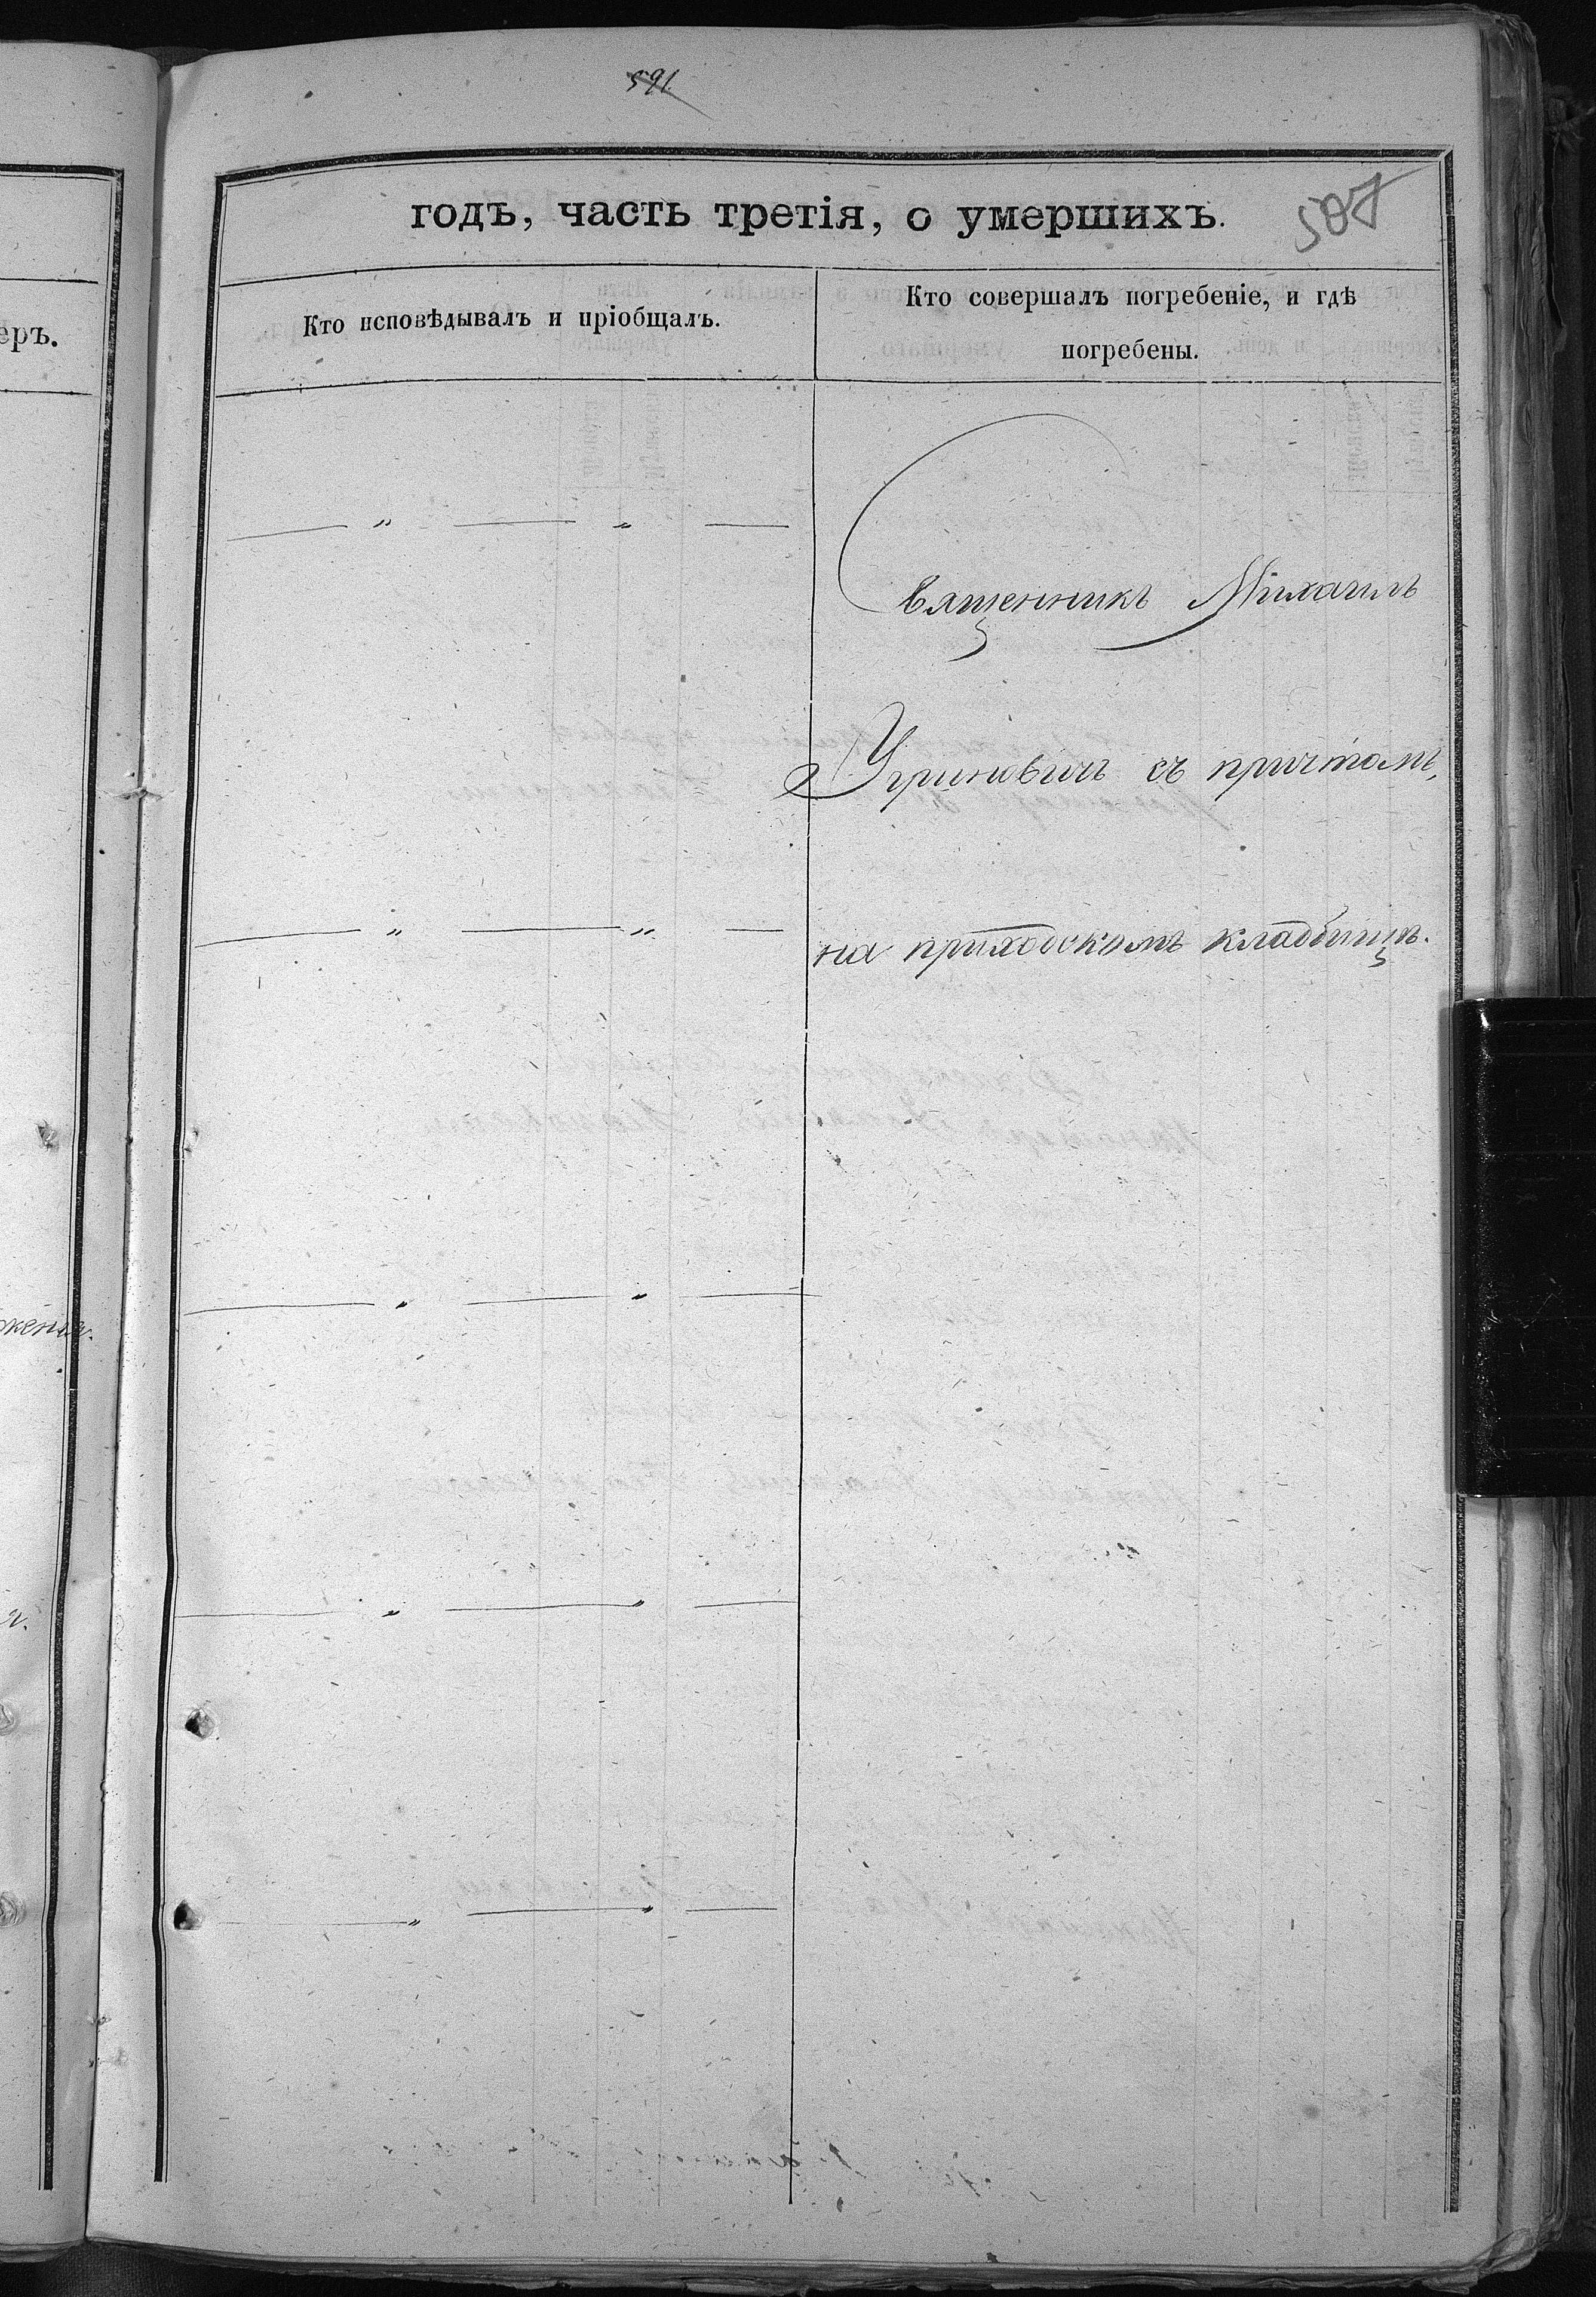 591
годъ, часть третія, о умершихъ.
507
еръ.
Кто исповѣдывалъ и пріобщалъ.
Кто совершалъ погребеніе, и гдѣ
погребены.
— " — " —
Священникъ Михаилъ
Угриновичъ съ причтомъ,
— " — " —
на приходскомъ кладбищѣ.
— " — " —
жения.
— " — " —
я.
— " — " —